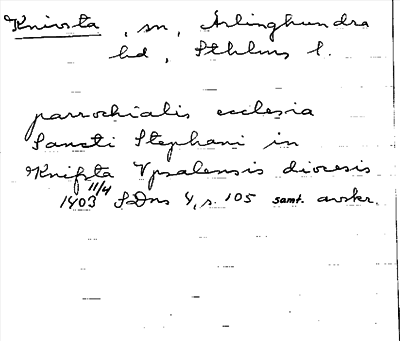 Knivsta, sn, Ärlinghundra
hd, Sthlms l.
parrochialis ecclesia
Sancti Stephani in
Knifsta Vpsalensis diocesis
11/4
1403 SDns 4, s. 105 samt. avskr.